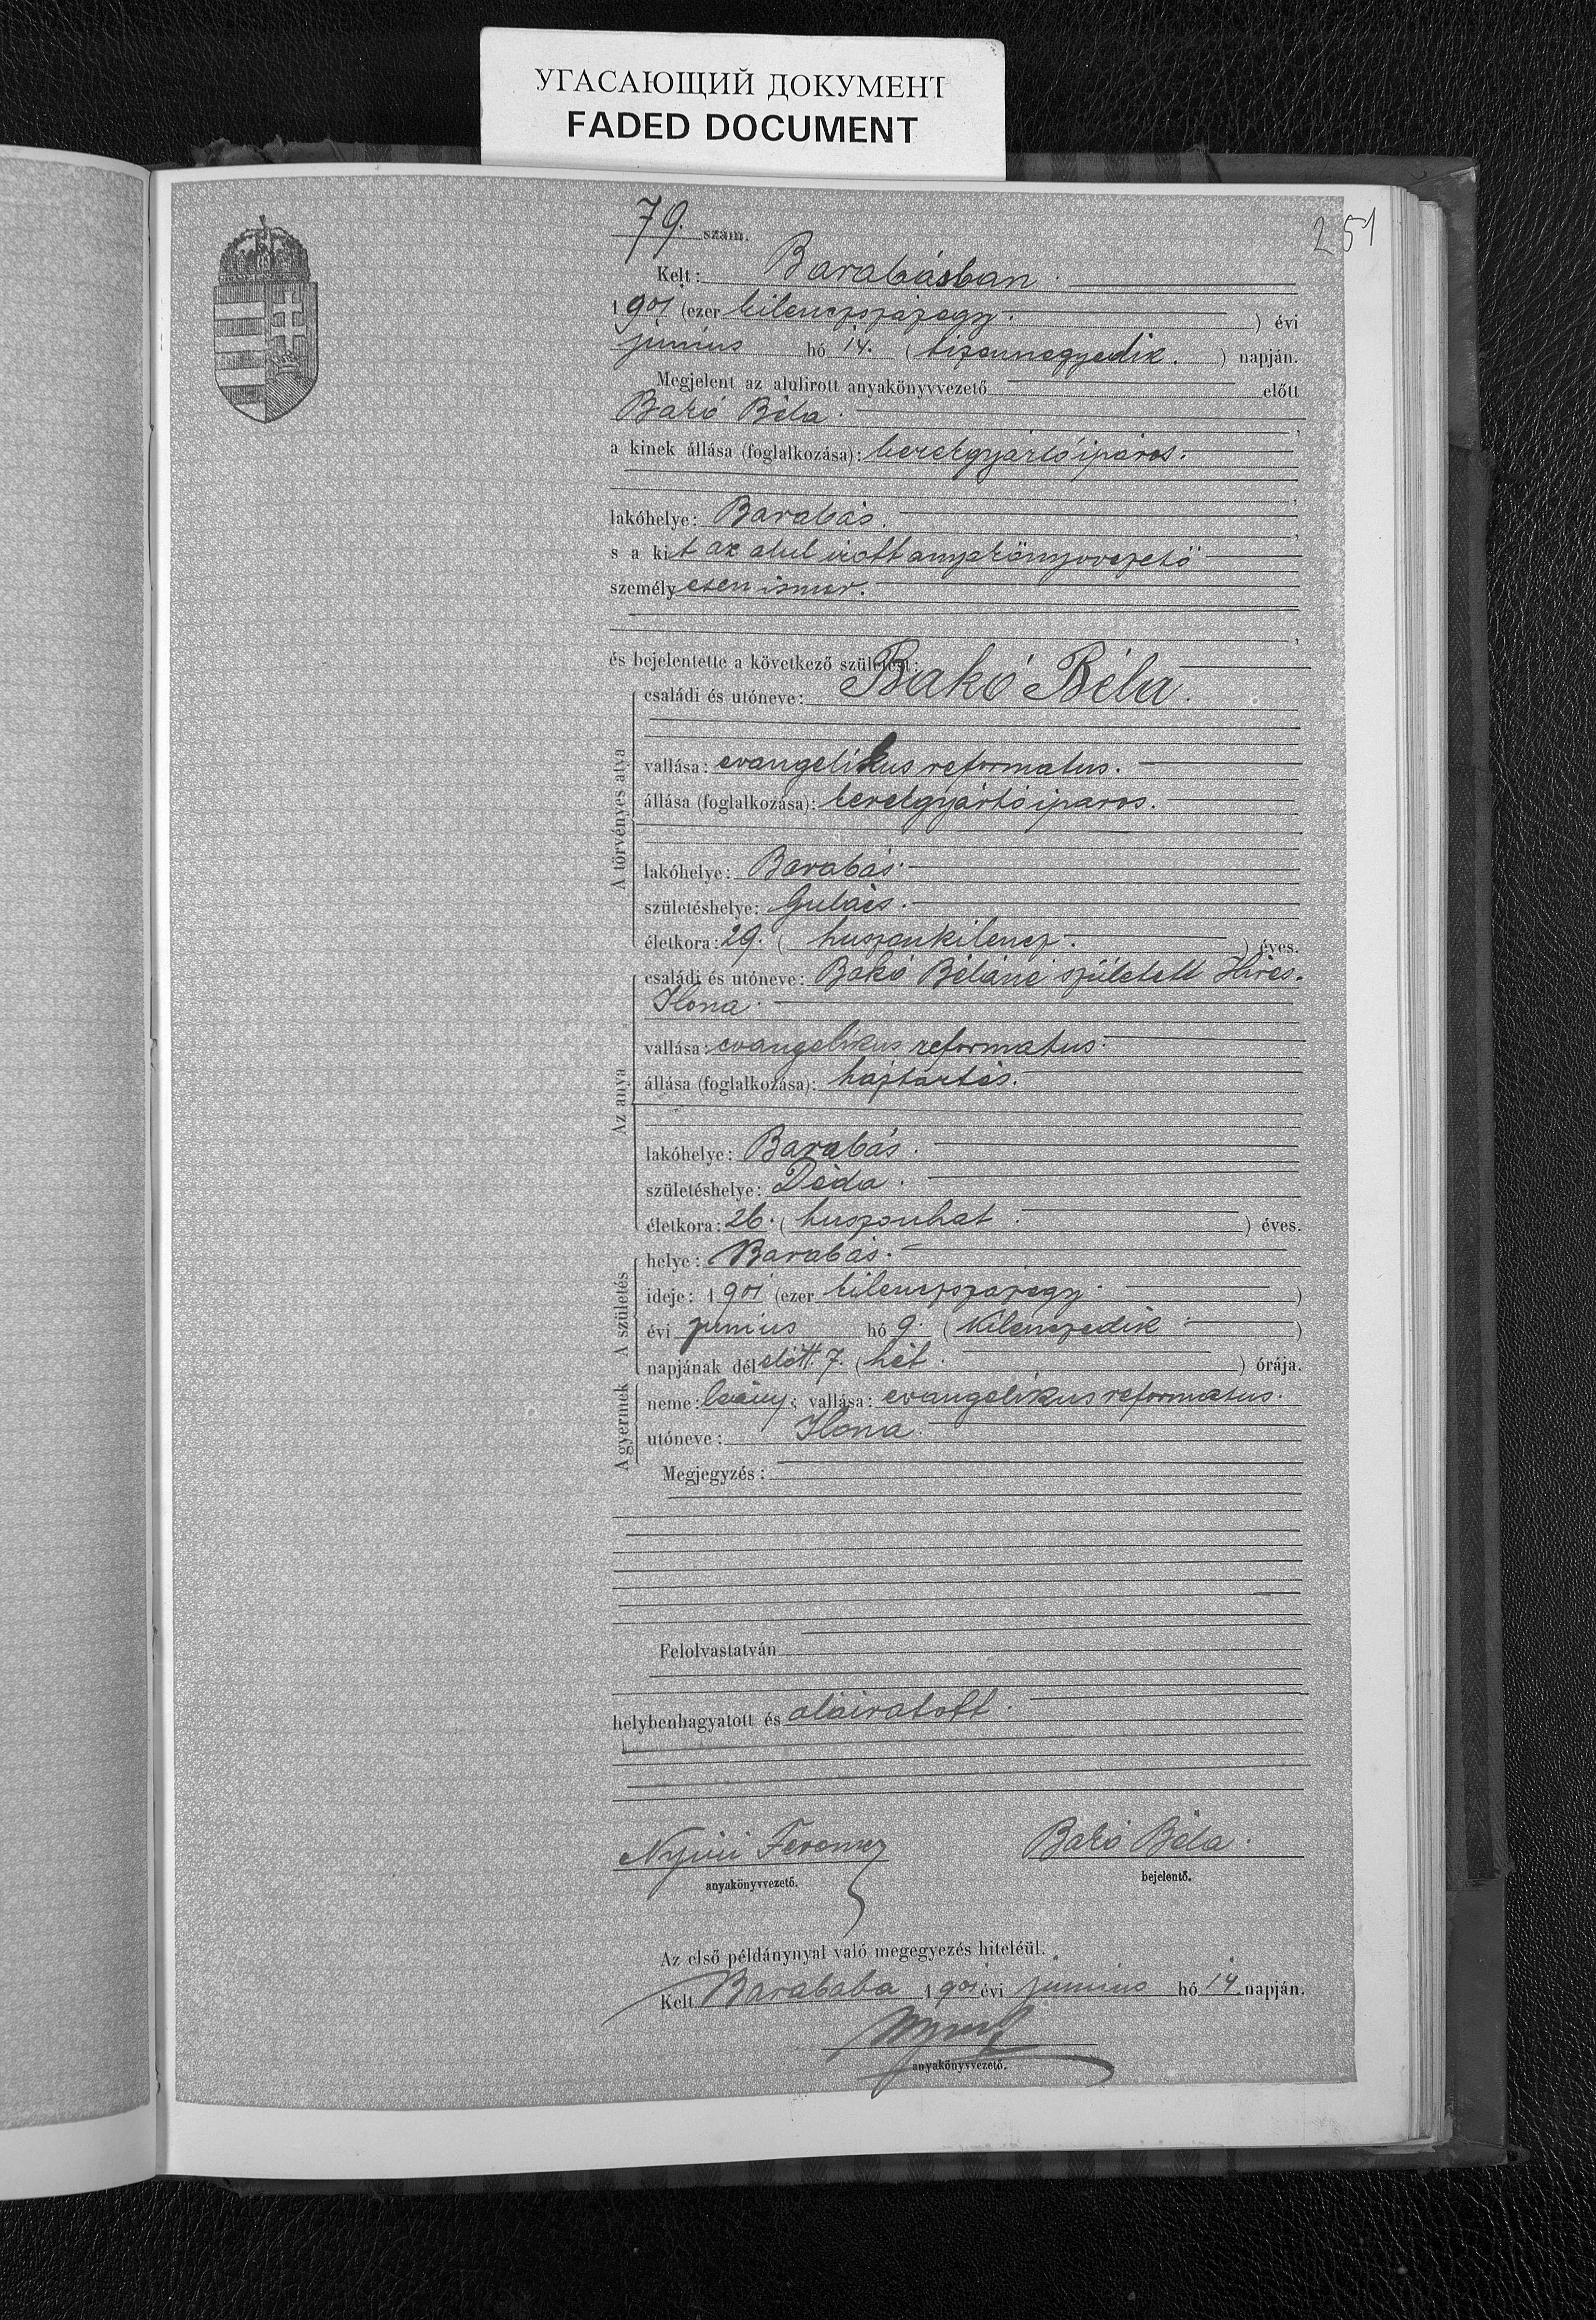 УГАСАЮЩИЙ ДОКУМЕНТ
FADED DOCUMENT
251
79. szám.
Kelt: Barabásban
1901 (ezer kilenczszázegy.) évi
junius hó 14. (tizennegyedik.) napján.
Megjelent az alulirott anyakönyvvezető előtt
Bakó Béla.
a kinek állása (foglalkozása): kerékgyártó iparos.
lakóhelye: Barabás.
s a kit az alul irott anyakönyvvezető
személyesen ismer.
és bejelentette a következő születést:
A törvényes atya
családi és utóneve: Bakó Béla.
vallása: evangelikus reformatus.
állása (foglalkozása): kerékgyártó iparos.
lakóhelye: Barabás.
születéshelye: Gulács.
életkora: 29. (huszonkilencz.) éves.
Az anya
családi és utóneve: Bakó Béláné született Hires.
Ilona.
vallása: evangelikus reformatus.
állása (foglalkozása): háztartás.
lakóhelye: Barabás.
születéshelye: Déda.
életkora: 26. (huszonhat.) éves.
A születés
helye: Barabás.
ideje: 1901 (ezer kilenczszázegy)
évi junius hó 9. (kilenczedik)
napjának délelőtt 7. (hét.) órája.
A gyermek
neme: leány; vallása: evangelikus reformatus.
utóneve: Ilona.
Megjegyzés:
Felolvastatván
helybenhagyatott és aláiratott.
Nyiri Ferencz
anyakönyvvezető.
Bakó Béla.
bejelentő.
Az első példánynyal való megegyezés hiteléül.
Kelt Barabába 1901 évi junius hó 14 napján.
anyakönyvvezető.